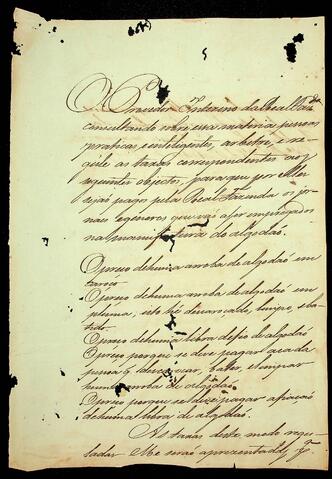 O Provedor Interino da Real Fazda
consultando sobre esta materia pessoas
praticas, e inteligentes, arbitre, e re-
gule as taxas correspondentes aos
seguintes objectos, para que por elles
sejaõ pagos pela Real Fazenda os jor-
naes, e generos que vaõ a ser empregados
na manufactura do algodaõ.
O preço de huma arroba de algodaõ em
O preço de huma arroba de algodaõ em
pluma, isto hé descaroçado, limpo, e ba-
tido.
O preço de huma libra de fio de algodaõ
O preço porque se deve pagar a cada
pessoa q descaroçar, bater, e limpar
huma arroba de algodaõ.
O preço porque se deve pagar a fiaçaõ
de huma libra de algodaõ.
As taxas deste modo regu-
ladas me seraõ apresentadas, pa